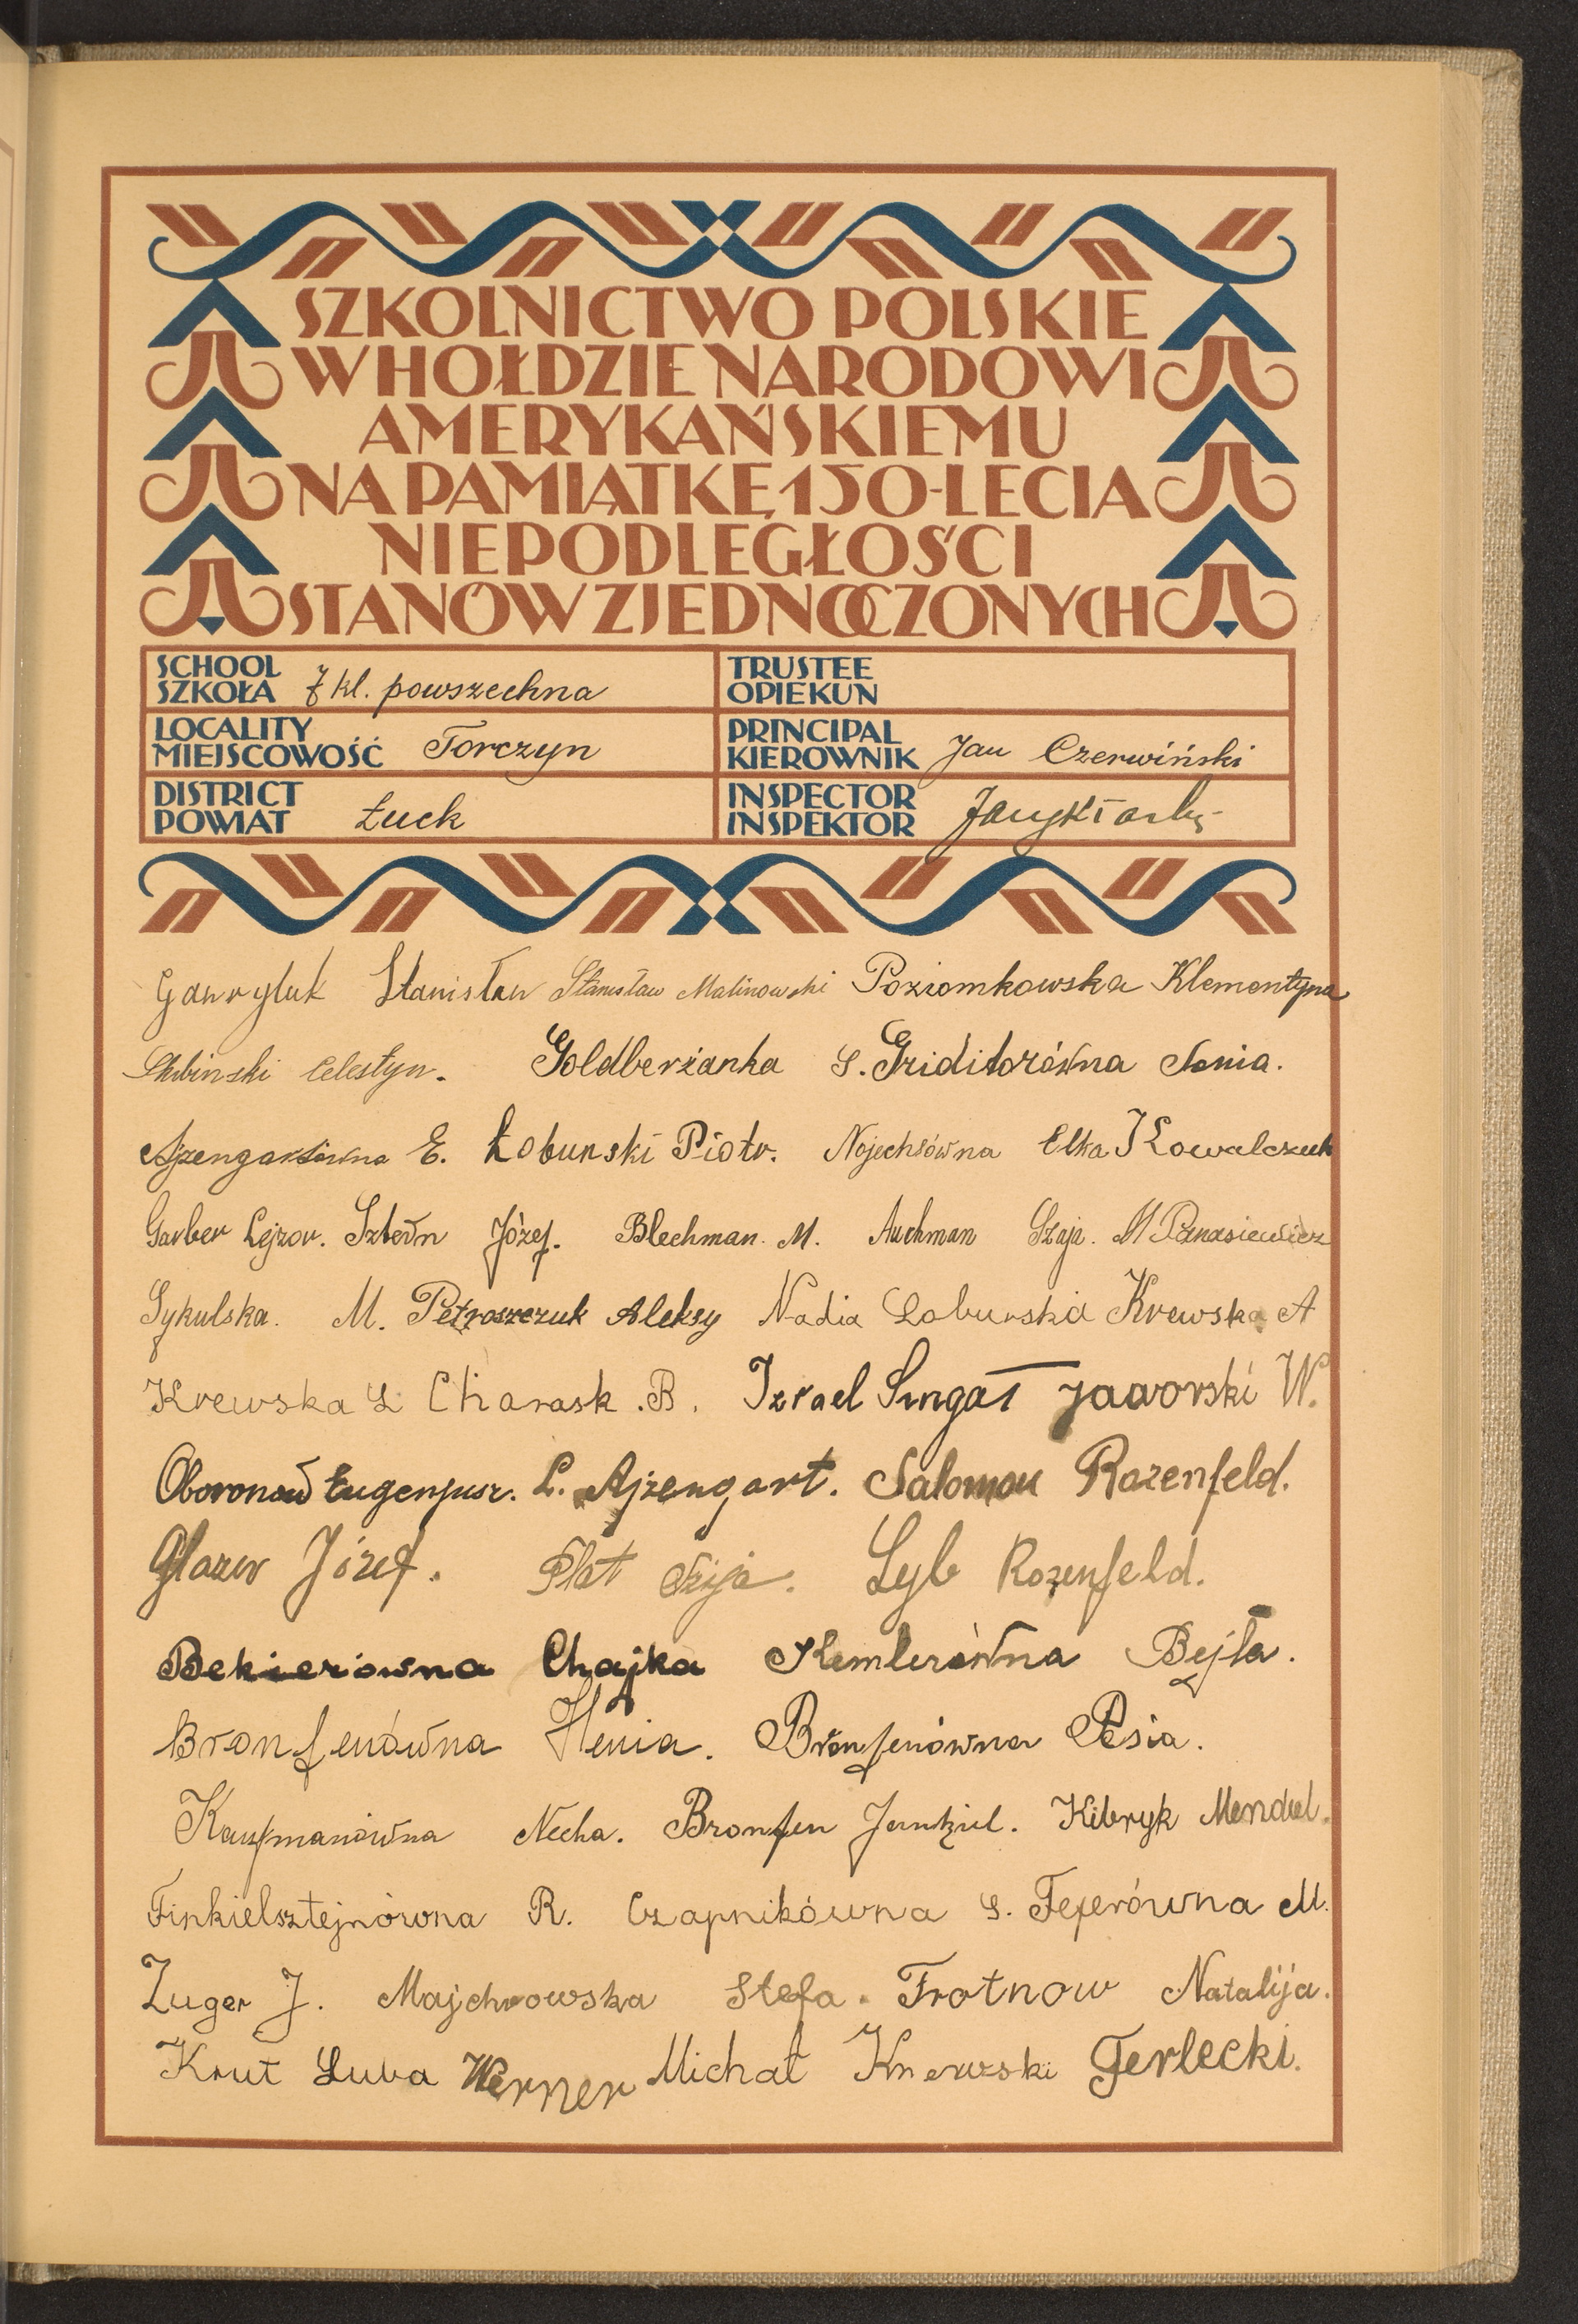 SZKOLNICTWO POLSKIE
W HOŁDZIE NARODOWI
AMERYKAŃSKIEMU
NA PAMIĄTKĘ 150-LECIA
NIEPODLEGŁOŚCI
STANÓW ZJEDNOCZONYCH
SCHOOL
SZKOŁA 7 kl. powszechna
TRUSTEE
OPIEKUN
LOCALITY
MIEJSCOWOŚĆ Torczyn
PRINCIPAL
KIEROWNIK Jan Czerwiński
DISTRICT
POWIAT Łuck
INSPECTOR
INSPEKTOR
Gawryluk Stanisław Stanisław Malinowski Poziomkowska Klementyna
Skibinski Celestyn. Goldberżanka S. Griditorówna Sonia.
Ajzengartówna E. Łobunski Piotr. Nojechsówna Elka Kowalczuk
Garber Lejzor. Sztern Józef. Blechman. M. Auchman Szaja. M Panasiewicz
Sykulska. M. Petroszczuk Aleksy Nadia Loburska Krewska A
Krewska L Charask. B. Izrael Singał Jaworski W.
Oboronow Eugenjusz. L. Ajzengart. Salomon Rozenfeld.
Glazer Józef. Plat Szija. Lyb Rozenfeld.
Bekierówna Chajka Kemlerówna Bejła.
Bronfenówna Henia. Bronfenówna Pesia.
Kaufmanówna Necha. Bronfen Jankiel. Kibryk Mendel.
Finkielsztejnówna R. Czapnikówna S. Feferówna M.
Zuger J. Majchrowska Stefa. Trotnow Natalija.
Krut Luba Werner Michał Knewski Terlecki.